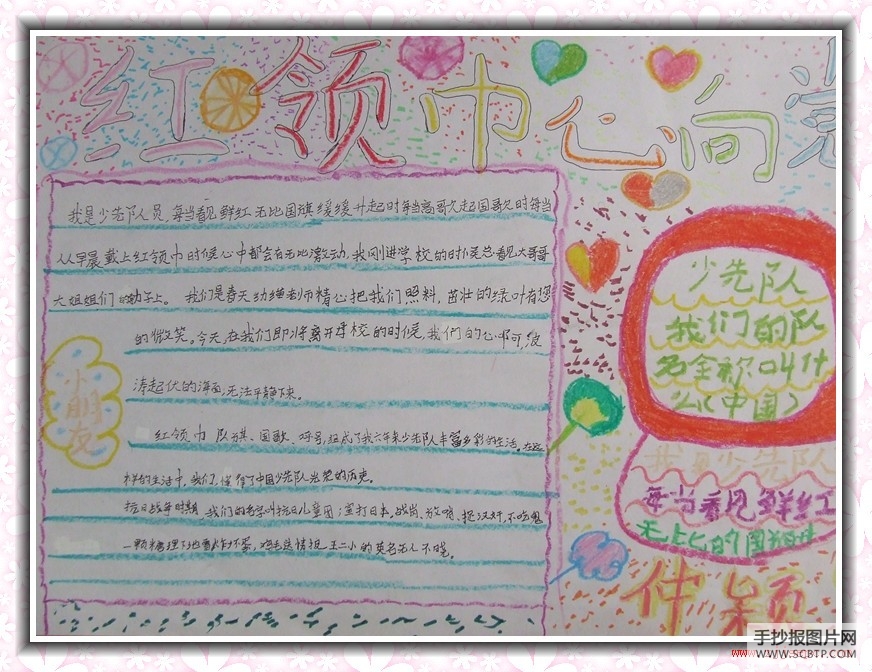 红领巾心向党
我是少先队员 每当看见鲜红无比国旗缓缓升起时每当高歌大起国歌时每当
从早晨戴上红领巾时候心中都会有无比激动,我刚进学校的时候总看见大哥哥
大姐姐们的脖子上。我们是春天幼苗老师精心把我们照料,茁壮的绿叶有您
的微笑。今天,在我们即将离开学校的时候,我们的心却可
涛起伏的海面,无法平静下来。
红领巾 队旗、国歌、呼号,组成了我六年来少先队丰富多彩的生活。在这
样的生活中,我们,懂得了中国少先队光荣的历史。
抗日战争时期 我们的名字叫抗日儿童团 打日本,站岗、放哨、捉汉奸,不吃鬼
一颗糖埋下地雷炸坏蛋,鸡毛送情报 王二小的英名无人不晓。
小朋友
少先队
我们的队
名全称叫什
么(中国)
我是少先队
每当看见鲜红
无比的国
手抄报图片网
WWW.SCBTP.COM